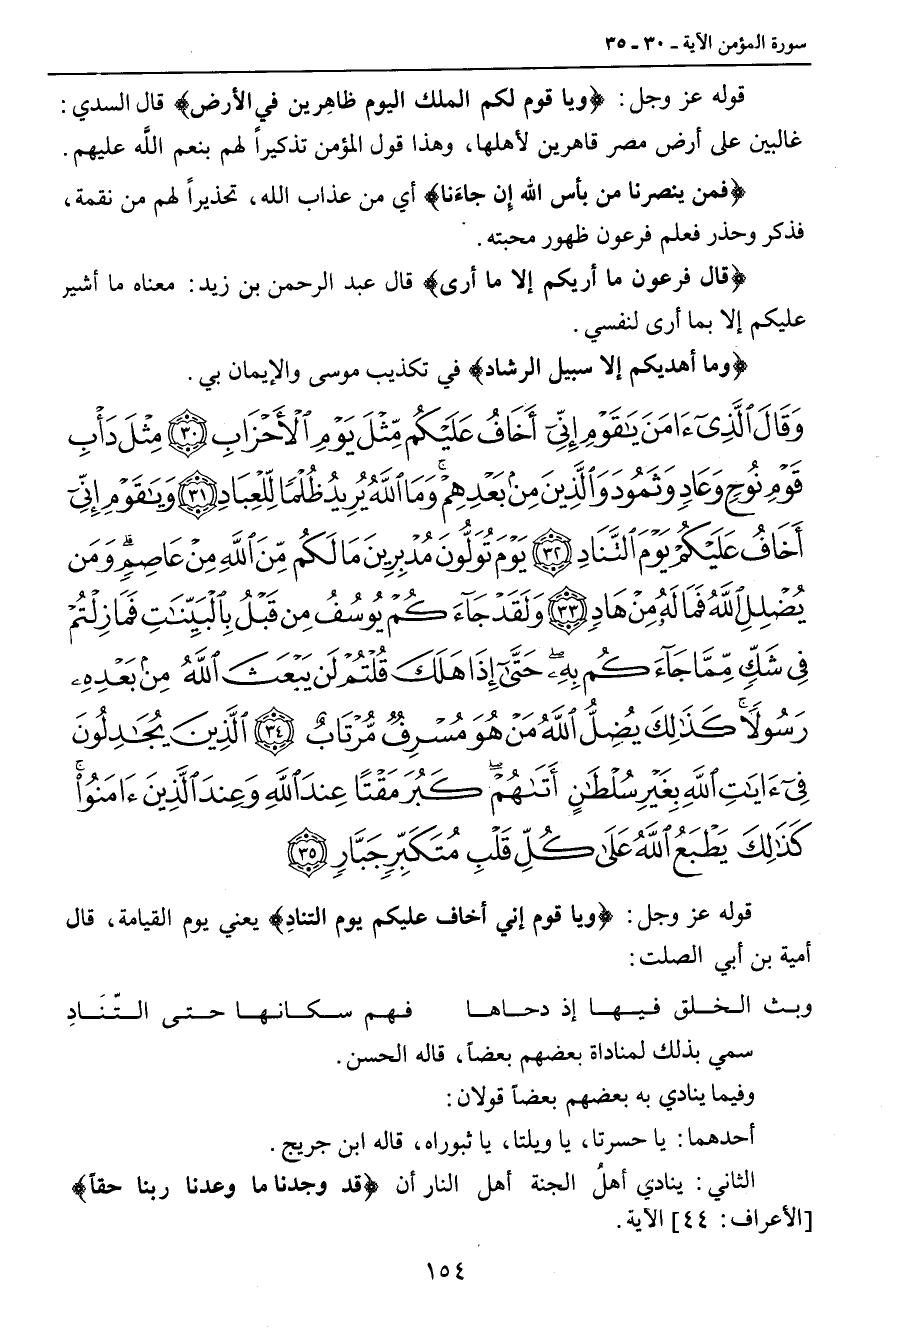 سورة المؤمن الآية ـ ٣٠ ـ ٣٥
قوله عز وجل: ﴿ويا قوم لكم الملك اليوم ظاهِرين في الأرض﴾ قال السدي:
غالبين على أرض مصر قاهرين لأهلها، وهذا قول المؤمن تذكيراً لهم بنعم اللَّه عليهم.
﴿فمن ينصرنا من بأس الله إن جاءَنا﴾ أي من عذاب الله، تحذيراً لهم من نقمة،
فذكر وحذر فعلم فرعون ظهور محبته.
﴿قال فرعون ما أريكم إلا ما أرى﴾ قال عبد الرحمن بن زيد: معناه ما أشير
عليكم إلا بما أرى لنفسي.
﴿وما أهديكم إلا سبيل الرشاد﴾ في تكذيب موسى والإيمان بي.
وَقَالَ ٱلَّذِىٓ ءَامَنَ يَٰقَوْمِ إِنِّىٓ أَخَافُ عَلَيْكُم مِّثْلَ يَوْمِ ٱلْأَحْزَابِ ﴿٣٠﴾ مِثْلَ دَأْبِ
قَوْمِ نُوحٍ وَعَادٍ وَثَمُودَ وَٱلَّذِينَ مِنۢ بَعْدِهِمْ ۚ وَمَا ٱللَّهُ يُرِيدُ ظُلْمًا لِّلْعِبَادِ ﴿٣١﴾ وَيَٰقَوْمِ إِنِّىٓ
أَخَافُ عَلَيْكُمْ يَوْمَ ٱلتَّنَادِ ﴿٣٢﴾ يَوْمَ تُوَلُّونَ مُدْبِرِينَ مَا لَكُم مِّنَ ٱللَّهِ مِنْ عَاصِمٍ ۗ وَمَن
يُضْلِلِ ٱللَّهُ فَمَا لَهُۥ مِنْ هَادٍ ﴿٣٣﴾ وَلَقَدْ جَآءَكُمْ يُوسُفُ مِن قَبْلُ بِٱلْبَيِّنَٰتِ فَمَا زِلْتُمْ
فِى شَكٍّ مِّمَّا جَآءَكُم بِهِۦ ۖ حَتَّىٰٓ إِذَا هَلَكَ قُلْتُمْ لَن يَبْعَثَ ٱللَّهُ مِنۢ بَعْدِهِۦ
رَسُولًا ۚ كَذَٰلِكَ يُضِلُّ ٱللَّهُ مَنْ هُوَ مُسْرِفٌ مُّرْتَابٌ ﴿٣٤﴾ ٱلَّذِينَ يُجَٰدِلُونَ
فِىٓ ءَايَٰتِ ٱللَّهِ بِغَيْرِ سُلْطَٰنٍ أَتَىٰهُمْ ۖ كَبُرَ مَقْتًا عِندَ ٱللَّهِ وَعِندَ ٱلَّذِينَ ءَامَنُوا۟ ۚ
كَذَٰلِكَ يَطْبَعُ ٱللَّهُ عَلَىٰ كُلِّ قَلْبِ مُتَكَبِّرٍ جَبَّارٍ ﴿٣٥﴾
قوله عز وجل: ﴿ويا قوم إني أخاف عليكم يوم التنادِ﴾ يعني يوم القيامة، قال
أمية بن أبي الصلت:
وبـث الـخـلـق فـيـهـا إذ دحـاهـا فـهـم سـكـانـهـا حـتـى الـتَّـنَـادِ
سمي بذلك لمناداة بعضهم بعضاً، قاله الحسن.
وفيما ينادي به بعضهم بعضاً قولان:
أحدهما: يا حسرتا، يا ويلتا، يا ثبوراه، قاله ابن جريج.
الثاني: ينادي أهلُ الجنة أهل النار أن ﴿قد وجدنا ما وعدنا ربنا حقاً﴾
[الأعراف: ٤٤] الآية.
١٥٤